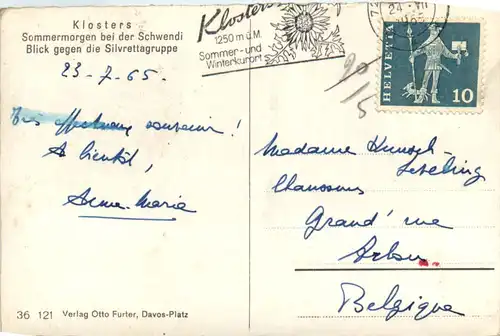 Klosters
Sommermorgen bei der Schwendi
Blick gegen die Silvrettagruppe
Klosters
1250 m ü.M.
Sommer- und
Winterkurort
24.VII
HELVETIA
10
20/5
23-7-65.
Très affectueux souvenir!
A bientôt,
Anne-Marie
Madame
Grand'rue
Belgique
36 121 Verlag Otto Furter, Davos-Platz